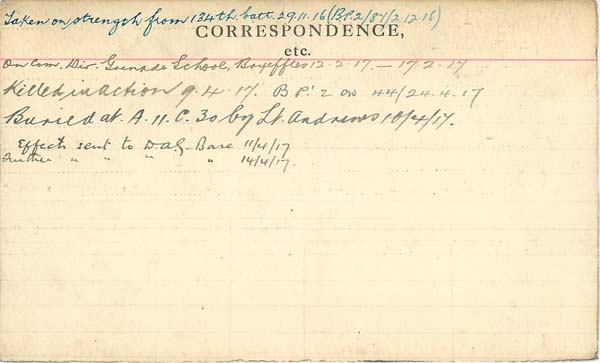 Taken on strength from 134th. batt. 29.11.16 (B.P.2/87/2.12.16)
CORRESPONDENCE,
etc.
On Com. Div. Grenade School, Boyeffles 12.2.17. — 17.2.17
Killed in action 9.4.17. B P.' 2 OW 44/24.4.17
Buried at A. 11. C. 30 by Lt. Andrews 10/4/17.
Effects sent to D.A.G. Base 11/4/17
Further " " " " 14/4/17.